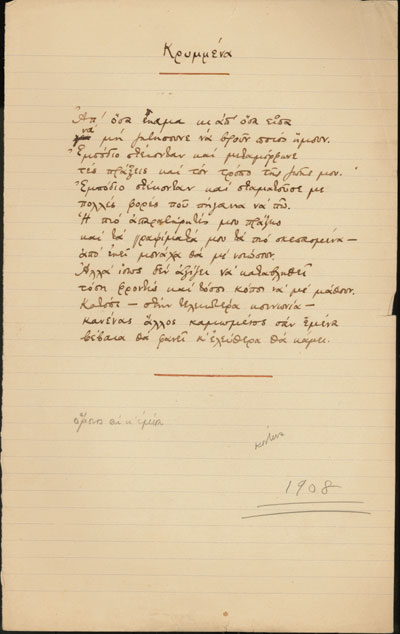 Κρυμμένα
Ἀπ' ὅσα ἔκαμα κι ἀπ' ὅσα εἶπα
νὰ μὴ ζητήσουνε νὰ βροῦν ποιὸς ἤμουν.
Ἐμπόδιο στέκονταν καὶ μεταμόρφωνε
τὲς πράξεις καὶ τὸν τρόπο τῆς ζωῆς μου.
Ἐμπόδιο στέκονταν καὶ σταματοῦσε με
πολλὲς φορὲς ποῦ πήγαινα νὰ πῶ.
Ἡ πιὸ ἀπαρατήρητές μου πράξεις
καὶ τὰ γραψίματά μου τὰ πιὸ σκεπασμένα —
ἀπὸ ἐκεῖ μονάχα θὰ μὲ νοιώσουν.
Ἀλλὰ ἴσως δὲν ἀξίζει νὰ καταβληθεῖ
τόση φροντὶς καὶ τόσος κόπος νὰ μὲ μάθουν.
Κατόπι — στὴν τελειοτέρα κοινωνία —
κανένας ἄλλος καμωμένος σὰν ἐμένα
βέβαια θὰ φανεῖ κ' ἐλεύθερα θὰ κάμει.
1908